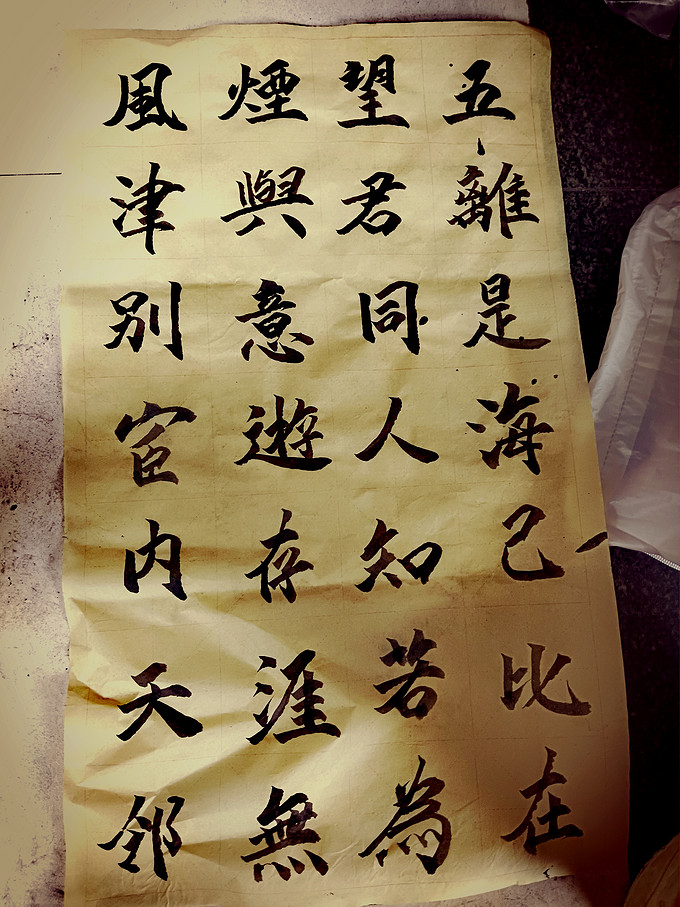 風煙望五
津與君離
别意同是
宦遊人海
内存知己
天涯若比
邻無為在